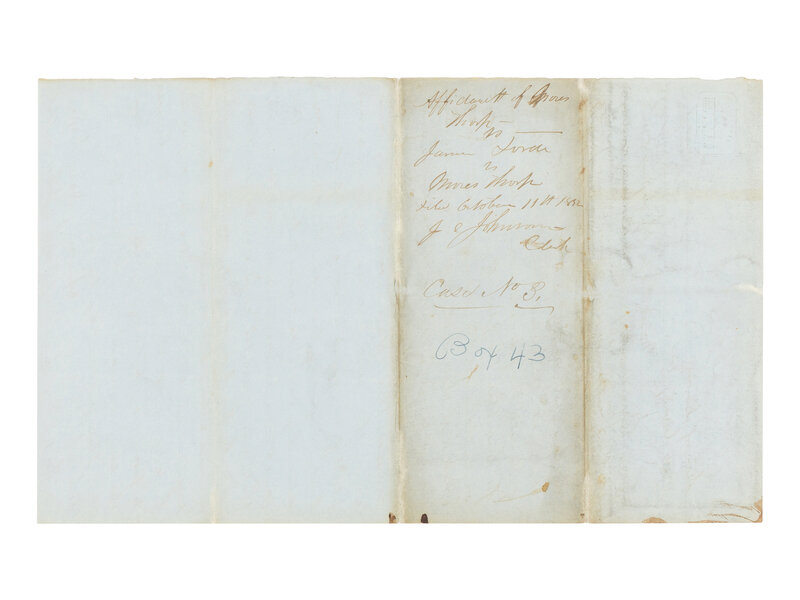 Affidavit of Moses
Thorp
vs
James Forde
vs
Moses Thorp
File October 11th 1852
J C Johnson
Clerk
Case No 3,
Box 43